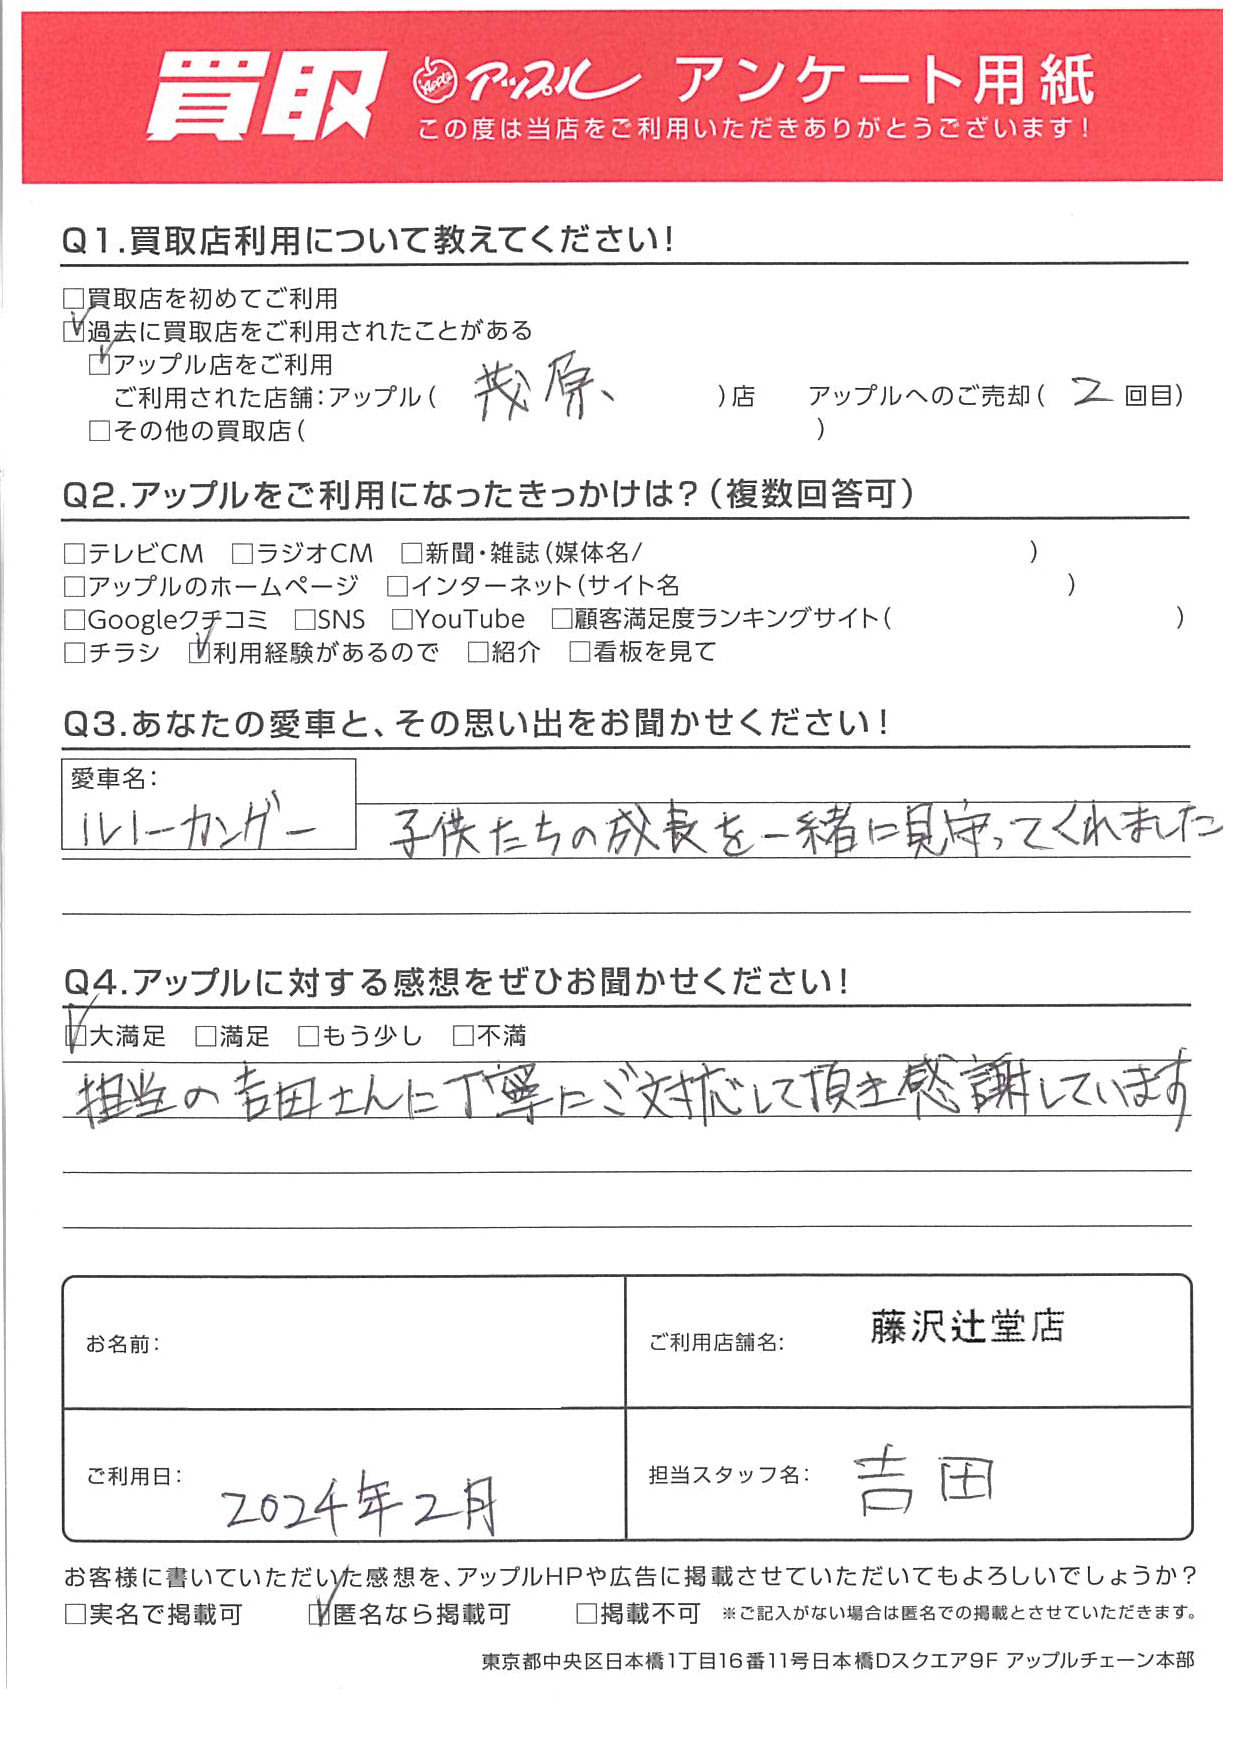 買取 Apple アップル アンケート用紙
この度は当店をご利用いただきありがとうございます!
Q1.買取店利用について教えてください!
□買取店を初めてご利用
☑過去に買取店をご利用されたことがある
☑アップル店をご利用
ご利用された店舗:アップル( 茂原、 )店 アップルへのご売却( 2 回目)
□その他の買取店( )
Q2.アップルをご利用になったきっかけは?(複数回答可)
□テレビCM □ラジオCM □新聞・雑誌(媒体名/ )
□アップルのホームページ □インターネット(サイト名 )
□Googleクチコミ □SNS □YouTube □顧客満足度ランキングサイト( )
□チラシ ☑利用経験があるので □紹介 □看板を見て
Q3.あなたの愛車と、その思い出をお聞かせください!
愛車名:
ルノーカングー 子供たちの成長を一緒に見守ってくれました
Q4.アップルに対する感想をぜひお聞かせください!
☑大満足 □満足 □もう少し □不満
担当の吉田さんに丁寧にご対応して頂き感謝しています
お名前: ご利用店舗名: 藤沢辻堂店
ご利用日: 2024年2月 担当スタッフ名: 吉田
お客様に書いていただいた感想を、アップルHPや広告に掲載させていただいてもよろしいでしょうか?
□実名で掲載可 ☑匿名なら掲載可 □掲載不可 ※ご記入がない場合は匿名での掲載とさせていただきます。
東京都中央区日本橋1丁目16番11号日本橋Dスクエア9F アップルチェーン本部